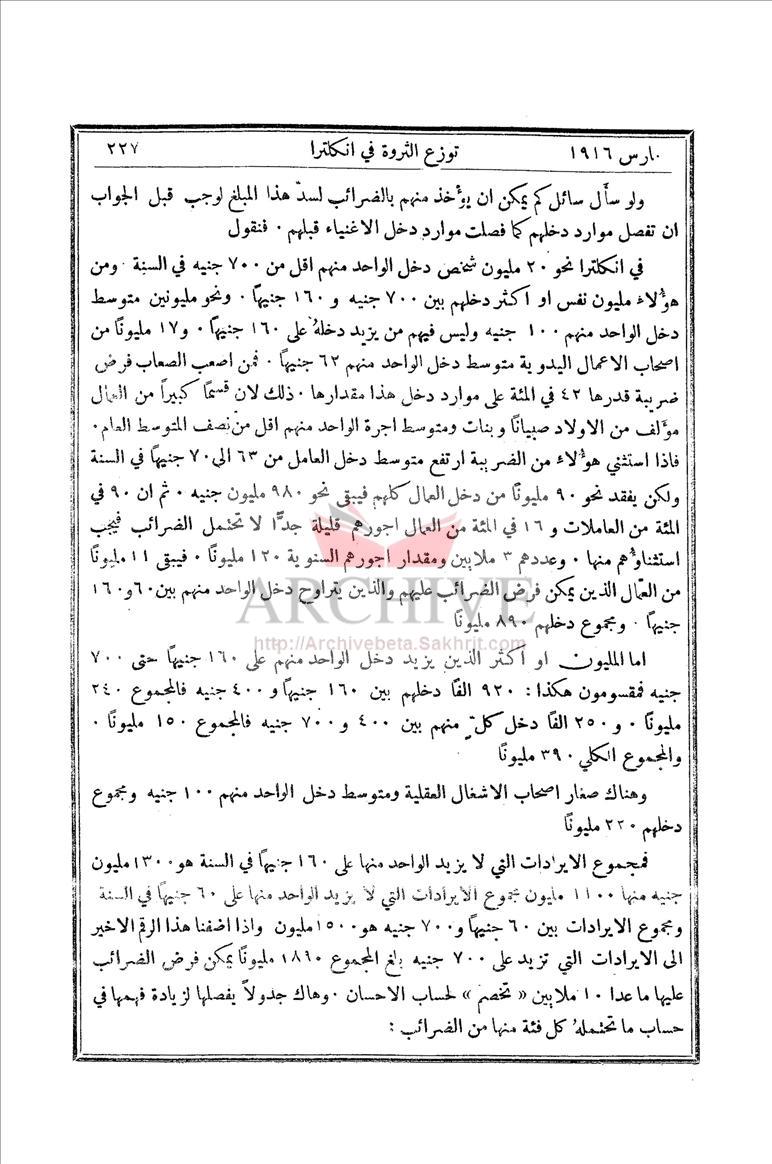 مارس ١٩١٦ توزع الثروة في انكلترا ٢٢٧
ولو سأل سائل كم يمكن ان يؤخذ منهم بالضرائب لسدّ هذا المبلغ لوجب قبل الجواب
ان تفصل موارد دخلهم كما فصلت موارد دخل الاغنياء قبلهم ٠ فنقول
في انكلترا نحو ٢٠ مليون شخص دخل الواحد منهم اقل من ٧٠٠ جنيه في السنة ٠ ومن
هؤلاء مليون نفس او اكثر دخلهم بين ٧٠٠ جنيه و ١٦٠ جنيهاً ٠ ونحو مليونين متوسط
دخل الواحد منهم ١٠٠ جنيه وليس فيهم من يزيد دخلهُ على ١٦٠ جنيهاً ٠ و١٧ مليوناً من
اصحاب الاعمال اليدوية متوسط دخل الواحد منهم ٦٢ جنيهاً ٠ فمن اصعب الصعاب فرض
ضريبة قدرها ٤٢ في المئة على موارد دخل هذا مقدارها ٠ ذلك لان قسماً كبيراً من العمال
مؤلف من الاولاد صبياناً وبنات ومتوسط اجرة الواحد منهم اقل من نصف المتوسط العام٠
فاذا استثني هؤلاء من الضريبة ارتفع متوسط دخل العامل من ٦٣ الى ٧٠ جنيهاً في السنة
ولكن يفقد نحو ٩٠ مليوناً من دخل العمال كلهم فيبقى نحو ٩٨٠ مليون جنيه ٠ ثم ان ٩٠ في
المئة من العاملات و ١٦ في المئة من العمال اجورهم قليلة جداً لا تحتمل الضرائب فيجب
استثناؤهم منها ٠ وعددهم ٣ ملايين ومقدار اجورهم السنوية ١٢٠ مليوناً ٠ فيبقى ١١ مليوناً
من العمال الذين يمكن فرض الضرائب عليهم والذين يتراوح دخل الواحد منهم بين ٦٠ و١٦٠
جنيهاً ٠ ومجموع دخلهم ٨٩٠ مليوناً
اما المليون او اكثر الذين يزيد دخل الواحد منهم على ١٦٠ جنيهاً حتى ٧٠٠
جنيه فمقسومون هكذا : ٩٢٠ الفاً دخلهم بين ١٦٠ جنيهاً و ٤٠٠ جنيه فالمجموع ٢٤٠
مليوناً ٠ و ٢٥٠ الفاً دخل كلٍّ منهم بين ٤٠٠ و ٧٠٠ جنيه فالمجموع ١٥٠ مليوناً ٠
والمجموع الكلي ٣٩٠ مليوناً
وهناك صغار اصحاب الاشغال العقلية ومتوسط دخل الواحد منهم ١٠٠ جنيه ومجموع
دخلهم ٢٢٠ مليوناً
فمجموع الايرادات التي لا يزيد الواحد منها على ١٦٠ جنيهاً في السنة هو ١٣٠٠ مليون
جنيه منها ١١٠٠ مليون مجموع الايرادات التي لا يزيد الواحد منها على ٦٠ جنيهاً في السنة
ومجموع الايرادات بين ٦٠ جنيهاً و ٧٠٠ جنيه هو ١٥٠٠ مليون واذا اضفنا هذا الرقم الاخير
الى الايرادات التي تزيد على ٧٠٠ جنيه بلغ المجموع ١٨٩٠ مليوناً يمكن فرض الضرائب
عليها ما عدا ١٠ ملايين « تخصم » لحساب الاحسان ٠ وهاك جدولاً يفصلها لزيادة فهمها في
حساب ما تحتملهُ كل فئة منها من الضرائب :
ARCHIVE
http://Archivebeta.Sakhrit.com